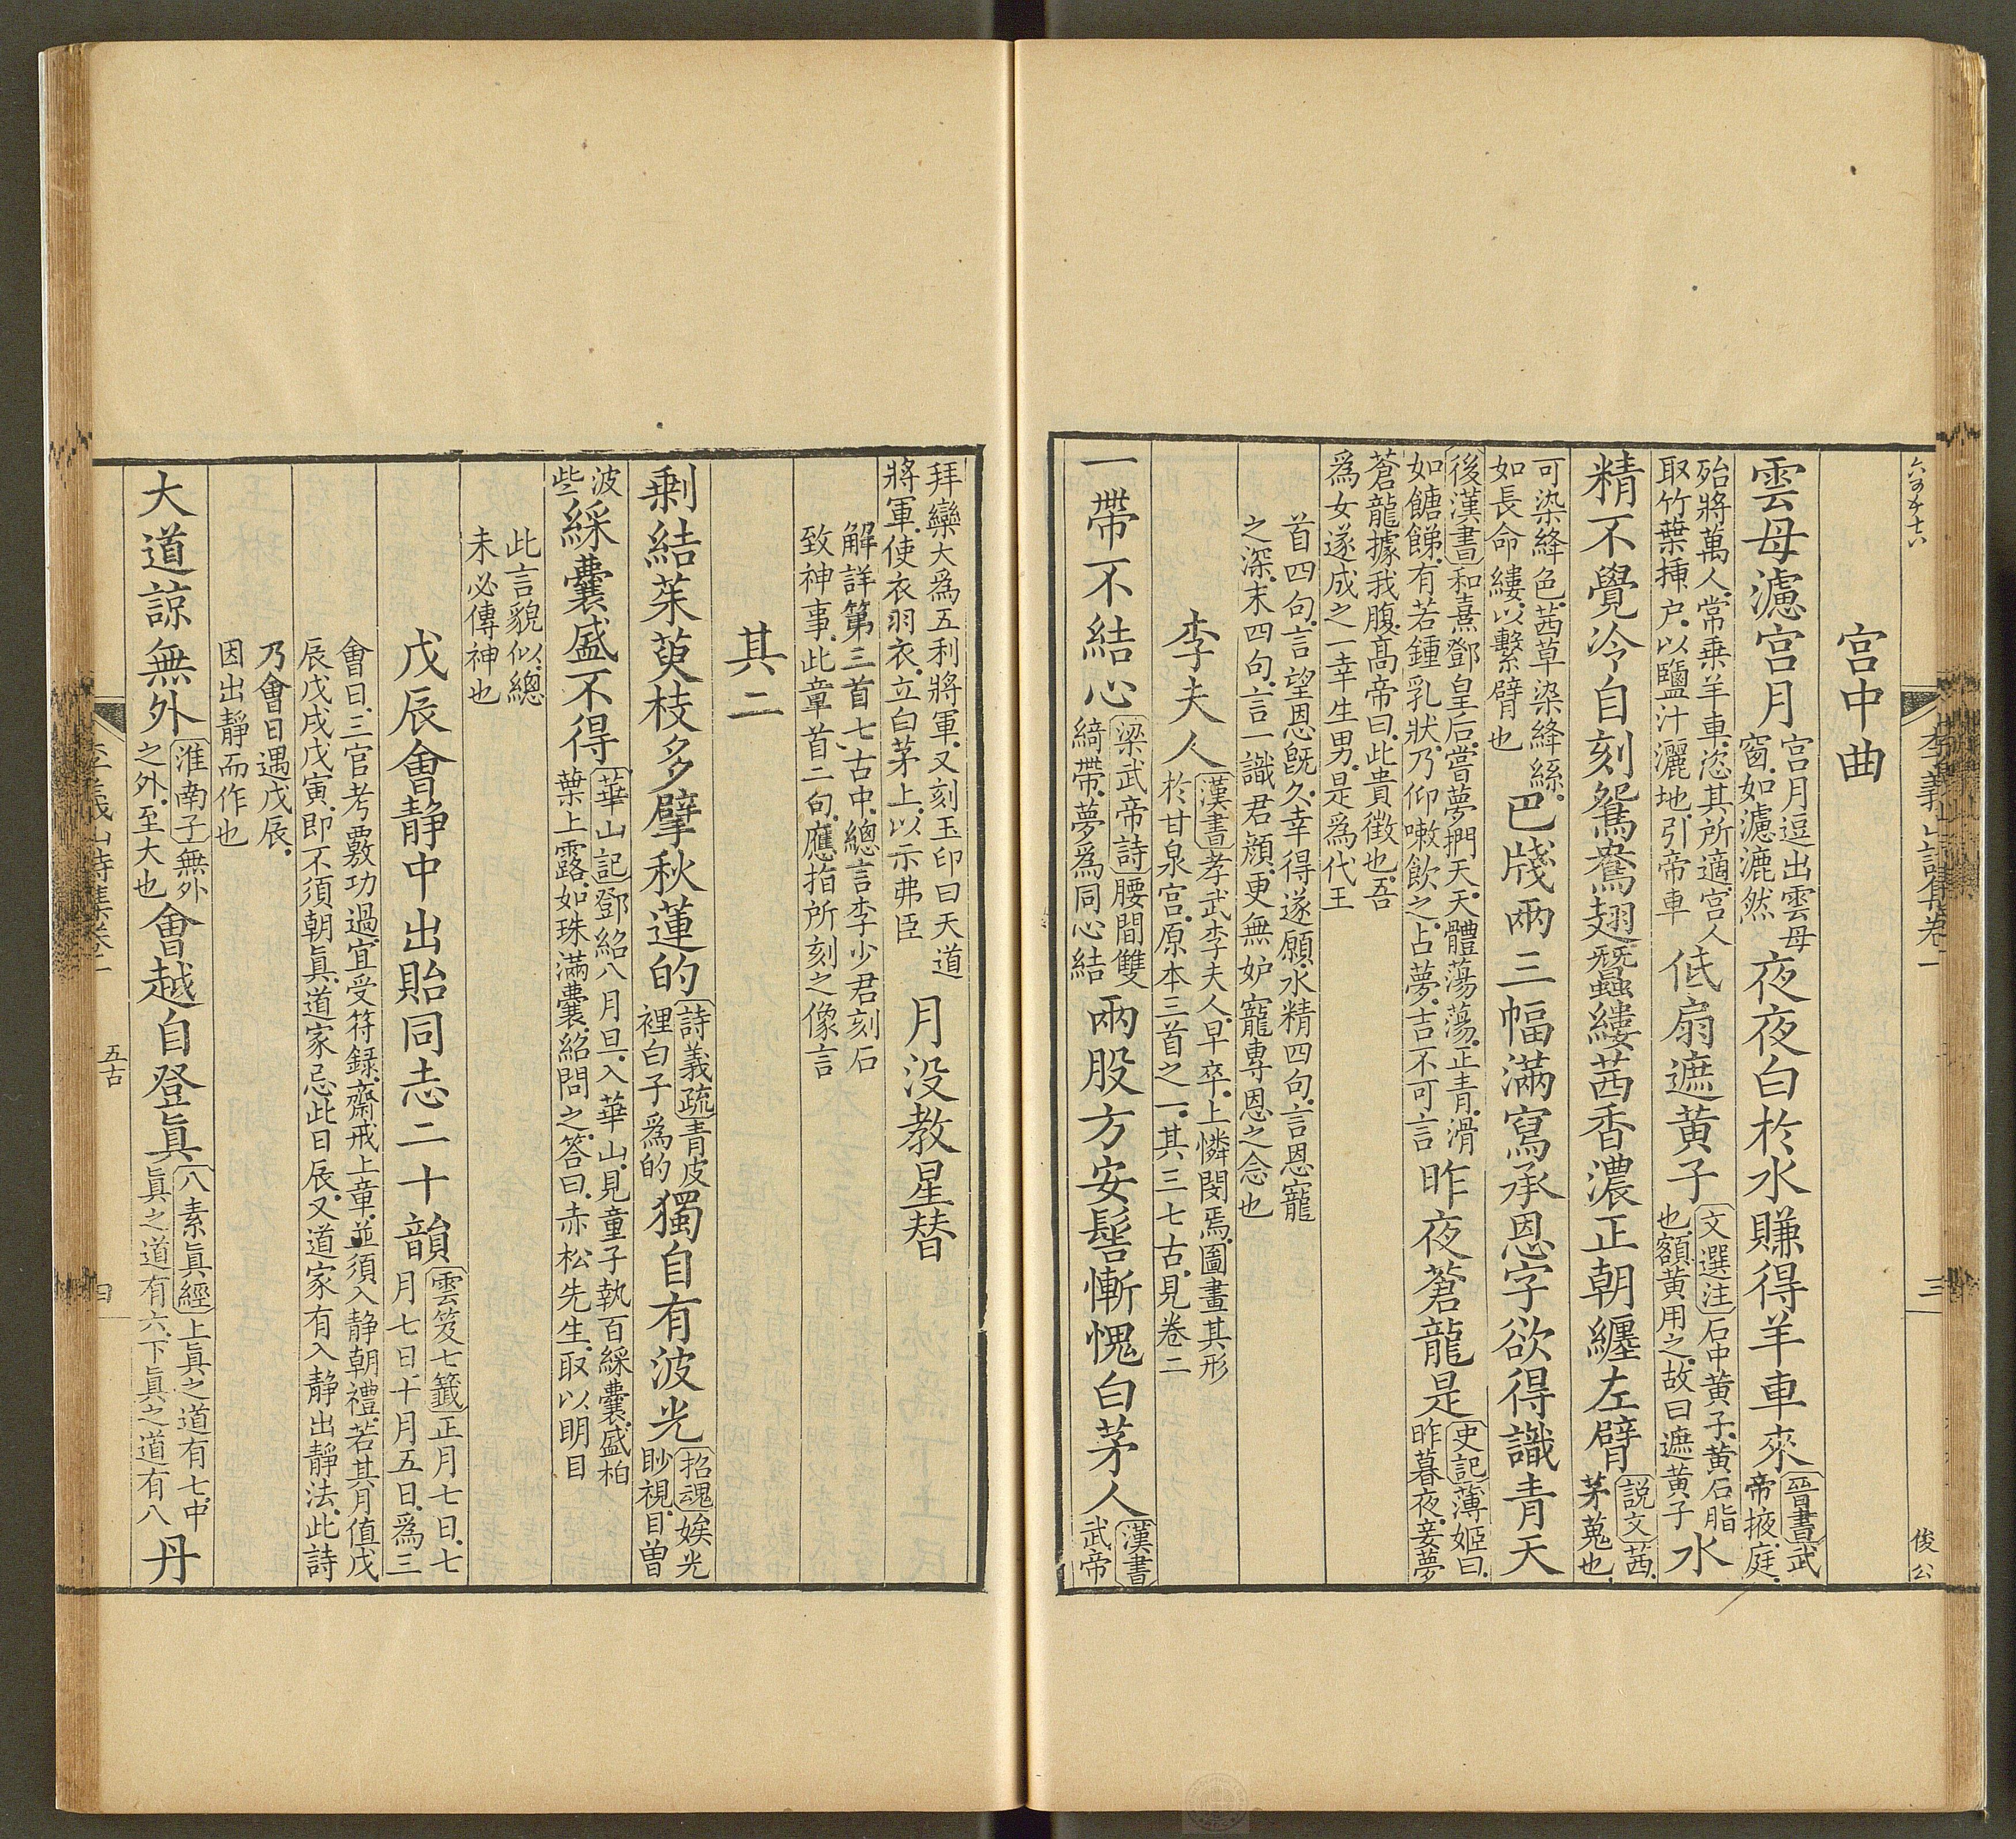 宮中曲
雲母濾宮月
宮月逗出雲母
窗如濾漉然
夜夜白於水賺得羊車來
晉書武
帝掖庭
殆將萬人常乗羊車恣其所適宮人
取竹葉揷户以鹽汁灑地引帝車
低扇遮黄子
文選注石中黄子黄石脂
也額黄用之故曰遮黄子
水
精不覺冷自刻鴛鴦翅蠶縷茜香濃正朝纏左臂
説文茜
茅蒐也
可染絳色茜草染絳絲
如長命縷以繫臂也
巴牋兩三幅滿寫承恩字欲得識青天
後漢書和熹鄧皇后嘗夢捫天天體蕩蕩正青滑
如餹餳有若鍾乳狀乃仰嗽飲之占夢吉不可言
昨夜蒼龍是
史記薄姬曰
昨暮夜妾夢
蒼龍據我腹髙帝曰此貴徴也吾
爲女遂成之一幸生男是爲代王
首四句言望恩旣久幸得遂願水精四句言恩寵
之深末四句言一識君顔更無妒寵專恩之念也
李夫人
漢書孝武李夫人早卒上憐閔焉圖畫其形
於甘泉宮原本三首之一其三七古見卷二
一帶不結心
梁武帝詩腰間雙
綺帶夢爲同心結
兩股方安髻慚愧白茅人
漢書
武帝
李義山詩集卷一
三
俊公
拜欒大爲五利將軍又刻玉印曰天道
將軍使衣羽衣立白茅上以示弗臣
月没教星替
解詳第三首七古中總言李少君刻石
致神事此章首二句應指所刻之像言
其二
剩結茱萸枝多擘秋蓮的
詩義疏青皮
裡白子爲的
獨自有波光
招魂娭光
眇視目曽
波
些
綵囊盛不得
華山記鄧紹八月旦入華山見童子執百綵囊盛柏
葉上露如珠滿囊紹問之答曰赤松先生取以明目
此言貌似總
未必傳神也
戊辰會靜中出貽同志二十韻
雲笈七籤正月七日七
月七日十月五日爲三
會日三官考覈功過宜受符録齋戒上章並須入靜朝禮若其月值戊
辰戊戌戊寅即不須朝眞道家忌此日辰又道家有入靜出靜法此詩
乃會日遇戊辰
因出靜而作也
大道諒無外
淮南子無外
之外至大也
會越自登眞
八素眞經上眞之道有七中
眞之道有六下眞之道有八
丹
李義山詩集卷一
五古
四